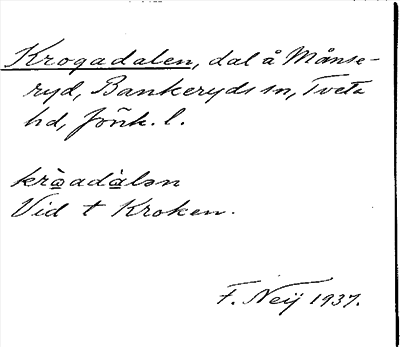 Krogadalen, dal å Månse-
ryd, Bankeryds sn, Tveta
hd, Jönk. l.
kròadàlən
Vid † Kroken.
F. Neij 1937.